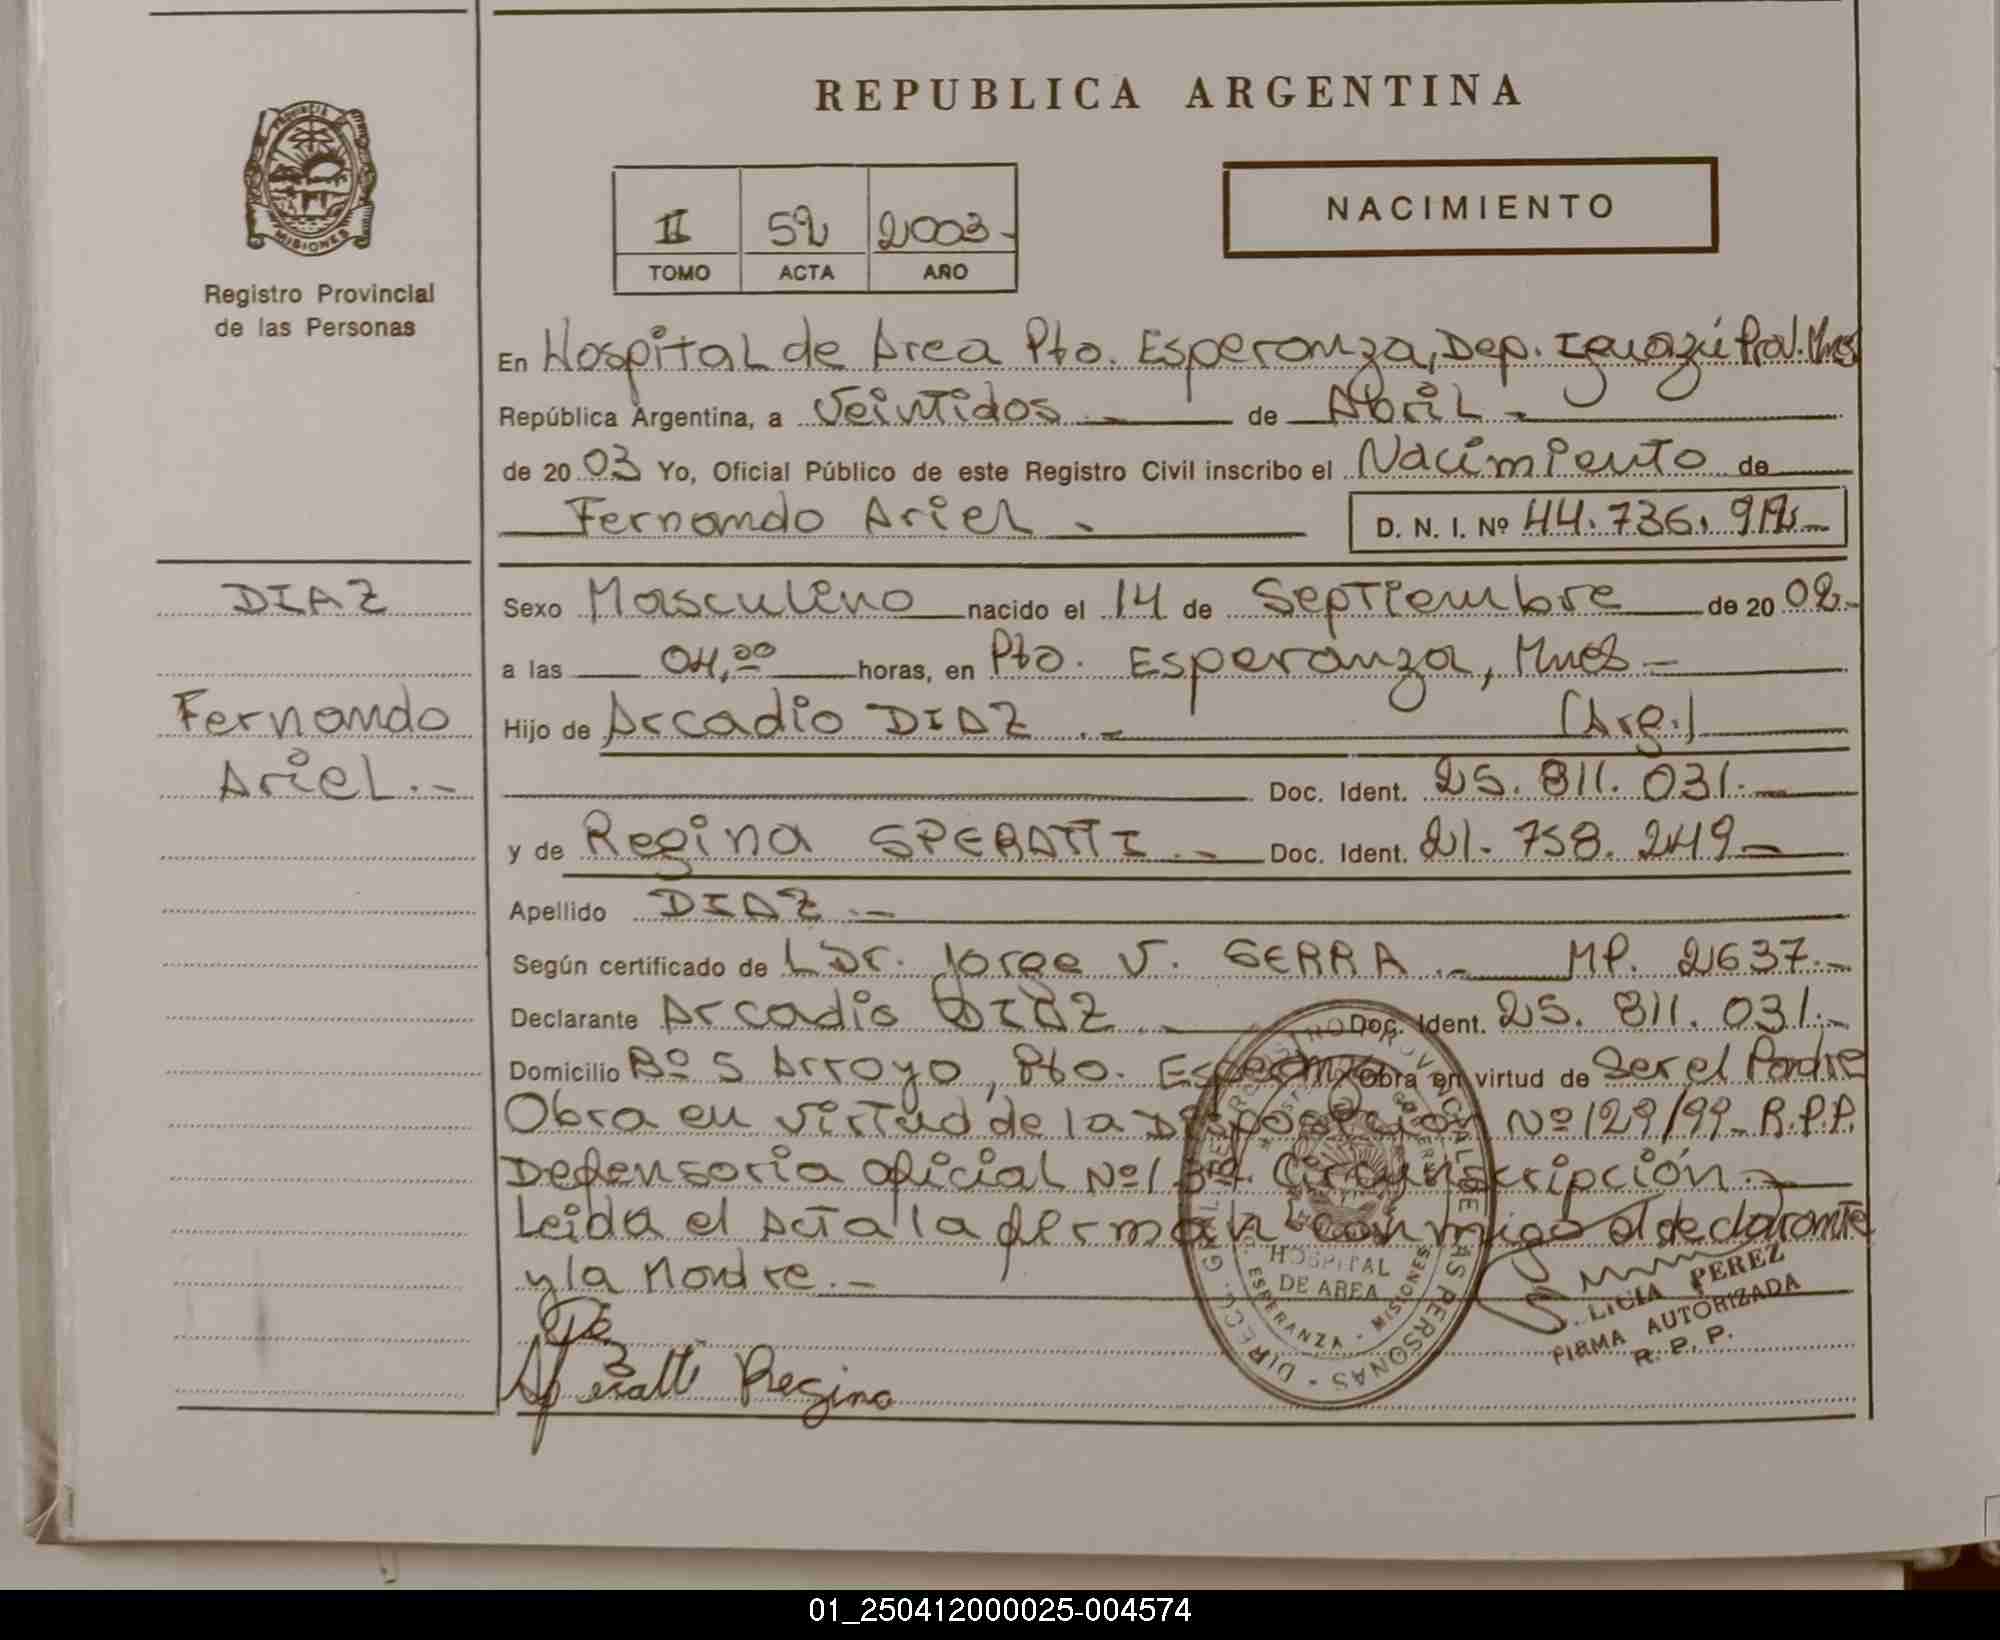 REPUBLICA ARGENTINA
PROVINCIA DE
MISIONES
Registro Provincial
de las Personas
II 52 2003-
TOMO ACTA AÑO
NACIMIENTO
En Hospital de Area Pto. Esperanza, Dep. Iguazú Prov. Mnes
República Argentina, a Veintidos.- de Abril.-
de 2003 Yo, Oficial Público de este Registro Civil inscribo el Nacimiento de
Fernando Ariel.-
D. N. I. Nº 44.736.
DIAZ
Fernando
Ariel.-
Sexo Masculino nacido el 14 de Septiembre de 20 02.-
a las 04,00 horas, en Pto. Esperanza, Mnes.-
Hijo de Arcadio DIAZ.- (Arg.)
Doc. Ident. 25.811.031.-
y de Regina SPERATTI.- Doc. Ident. 21.758.249-
Apellido DIAZ.-
Según certificado de Dr. Jorge V. SERRA.- MP. 2637.-
Declarante Arcadio DIAZ.- Doc. Ident. 25.811.031.-
Domicilio Bº 5 Arroyo, Pto. Esperanza Obra en virtud de Ser el Padre
Obra en virtud de la Disposición Nº 129/99- R.P.P.
Defensoria Oficial Nº1 3ra. Circunscripción.-
Leida el Acta la firman conmigo el declarante
y la Madre.-
Speratti Regina
DIREC. GRAL. DEL REGISTRO PROVINCIAL DE LAS PERSONAS
HOSPITAL
DE AREA
ESPERANZA - MISIONES
LICIA PEREZ
FIRMA AUTORIZADA
R. P. P.
01_250412000025-004574